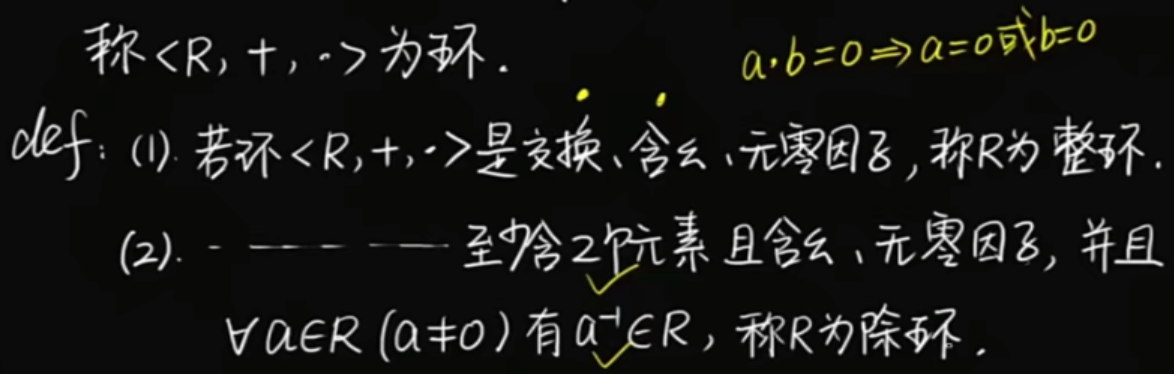 称<R, +, ·>为环.
a·b=0⇒a=0或b=0
def: (1). 若环<R,+,·>是交换、含幺、无零因子,称R为整环.
(2). - — — — 至少含2个元素且含幺、无零因子,并且
∀a∈R (a≠0) 有a⁻¹∈R, 称R为除环.